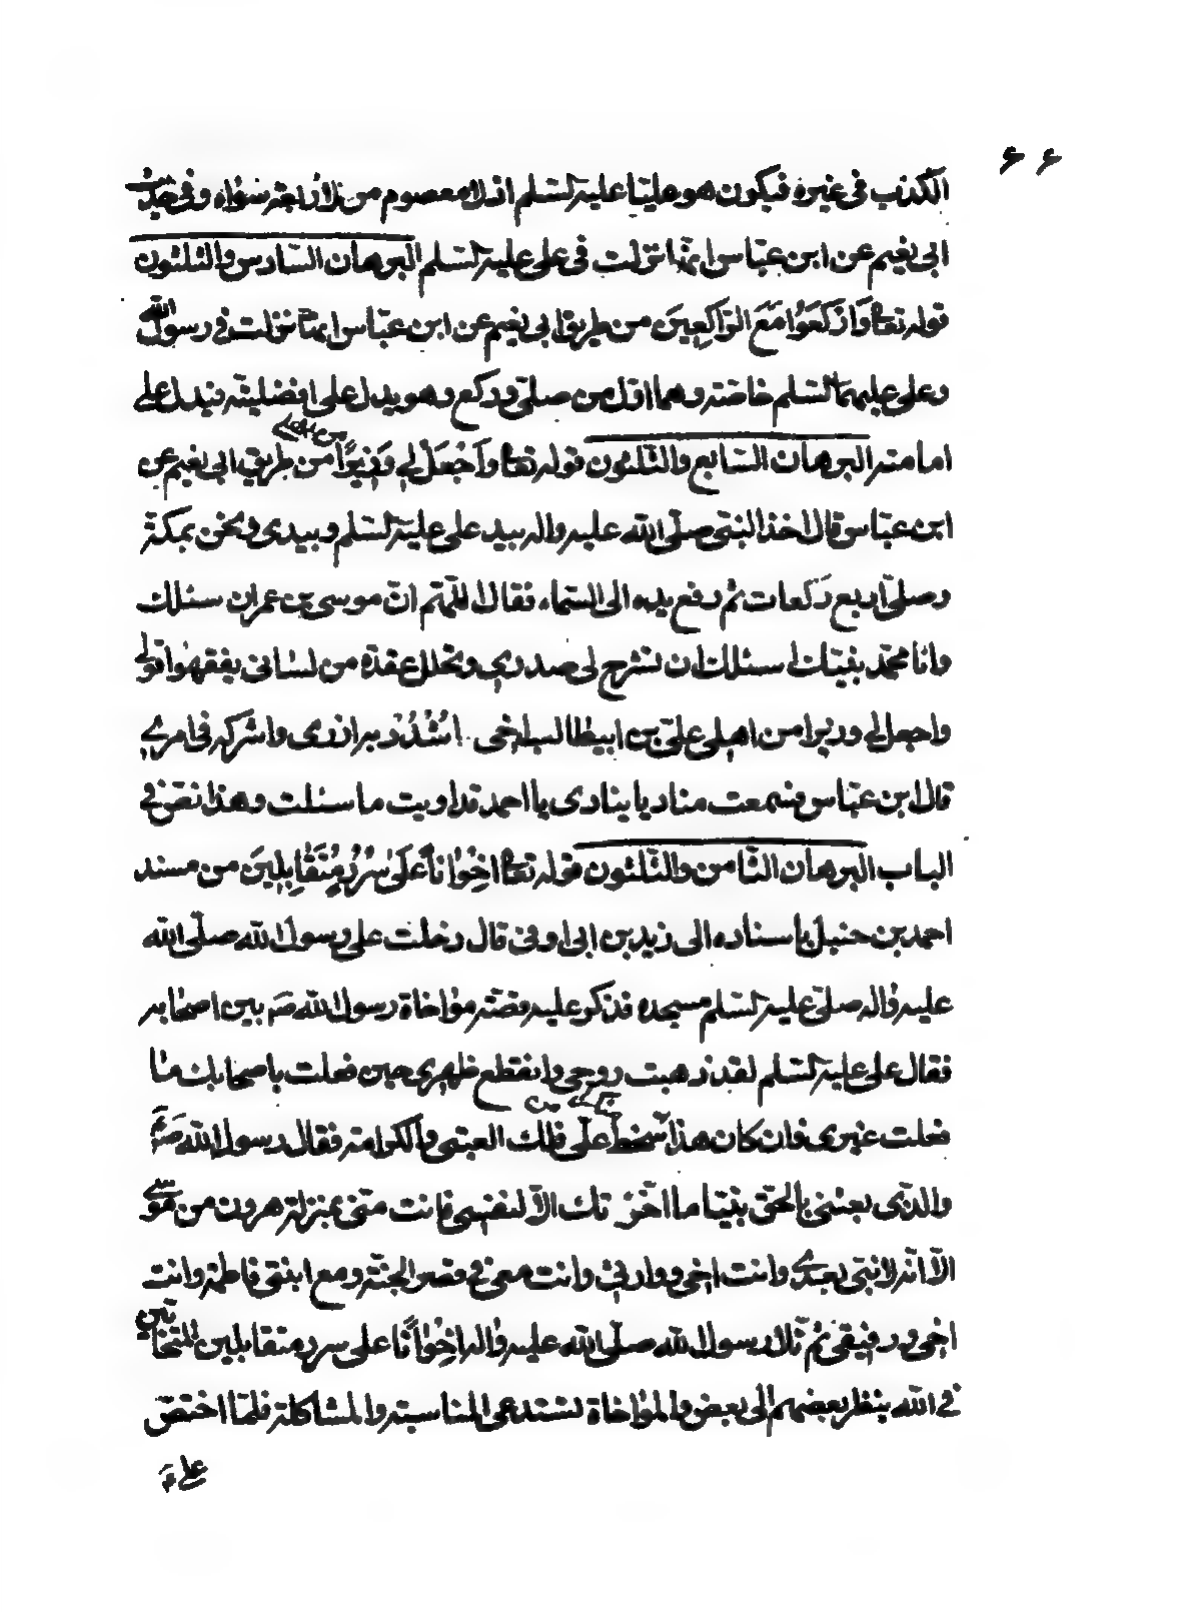 ۶۶
الكذب فى غيره فيكون هو عليا عليه السلم اذ لا معصوم من الاربعة سواه وفى حديث
ابى نعيم عن ابن عباس انها نزلت فى على عليه السلم البرهان السادس والثلثون
قوله تعا وَارْكَعُوا مَعَ الرَّاكِعِينَ من طريق ابى نعيم عن ابن عباس انها نزلت فى رسول الله
وعلى عليهما السلم خاصّة وهما اول من صلّى وركع وهو يدل على افضليته فيدل على
امامته البرهان السابع والثلثون قوله تعا وَاجْعَلْ لِي وَزِيرًا من اهلى من طريق ابى نعيم عن
ابن عباس قال اخذ النبى صلّى الله عليه واله بيد على عليه السلم وبيدى ونحن بمكة
وصلّى اربع ركعات ثم رفع يده الى السماء فقال اللّهم انّ موسى بن عمران سئلك
وانا محمّد نبيّك اسئلك ان تشرح لى صدرى وتحلل عقدة من لسانى يفقهوا قولى
واجعل لى وزيرا من اهلى علىّ بن ابيطالب اخى اشْدُدْ به ازرى واشركه فى امرى
قال ابن عباس فسمعت مناديا ينادى يا احمد قد اوتيت ما سئلت وهذا نصّ فى
الباب البرهان الثامن والثلثون قوله تعا اخِوَانًا عَلَى سُرُرٍ مُتَقَابِلِينَ من مسند
احمد بن حنبل باسناده الى زيد بن ابى اوفى قال دخلت على رسول الله صلّى الله
عليه واله مسجده فذكر عليه قصّة مؤاخاة رسول الله صَ بين اصحابه
فقال على عليه السلم لقد ذهبت روحى وانقطع ظهرى حين فعلت باصحابك ما
فعلت غيرى فان كان هذا من سخط علىّ فلك العتبى والكرامة فقال رسول الله صَ
والذى بعثنى بالحق نبيّا ما اخّرتك الّا لنفسى فانت منّى بمنزلة هرون من موسى
الّا انّه لا نبىّ بعدى وانت اخى ووارثى وانت معى فى قصر الجنّة ومع ابنتى فاطمة وانت
اخى ورفيقى ثم تلا رسول الله صلّى الله عليه واله اخِوَانًا على سرر متقابلين المتحابّين
فى الله ينظر بعضهم الى بعض والمؤاخاة تستدعى المناسبة والمشاكلة فلمّا اختصّ
على ع